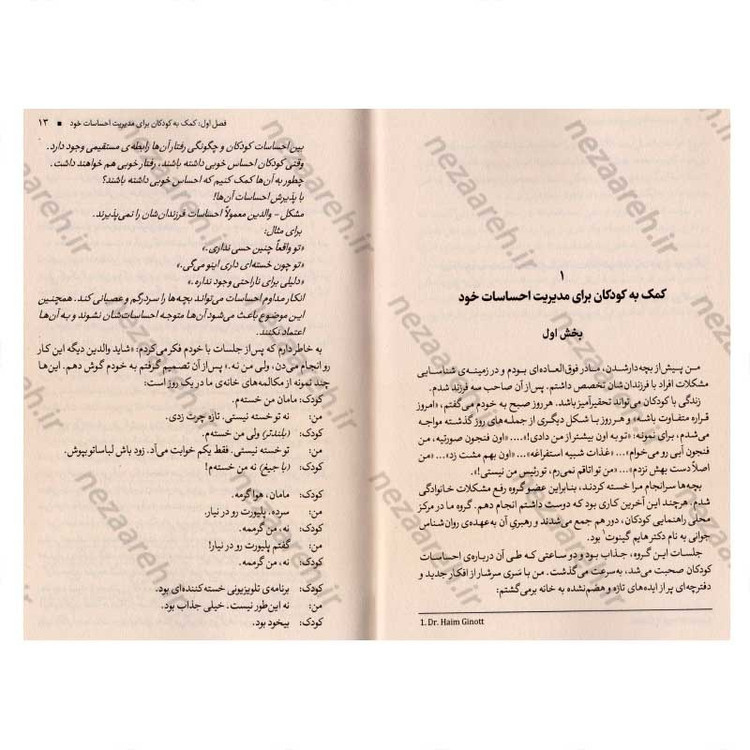 ۱
کمک به کودکان برای مدیریت احساسات خود
بخش اول
من پیش از بچه‌دار شدن، مادر فوق‌العاده‌ای بودم و در زمینه‌ی شناسایی
مشکلات افراد با فرزندان‌شان تخصص داشتم. پس از آن صاحب سه فرزند شدم.
زندگی با کودکان می‌تواند تحقیرآمیز باشد. هر روز صبح به خودم می‌گفتم، «امروز
قراره متفاوت باشه» و هر روز با شکل دیگری از جمله‌های روز گذشته مواجه
می‌شدم، برای نمونه: «تو به اون بیشتر از من دادی!»....«اون فنجون صورتیه، من
فنجون آبی رو می‌خوام»...«غذات شبیه استفراغه»...«اون بهم مشت زد»...«من
اصلاً دست بهش نزدم»...«من تو اتاقم نمی‌رم، تو رئیس من نیستی!».
بچه‌ها سرانجام مرا خسته کردند، بنابراین عضو گروه رفع مشکلات خانوادگی
شدم، هرچند این آخرین کاری بود که دوست داشتم انجام دهم. گروه ما در مرکز
محلی راهنمایی کودکان، دور هم جمع می‌شدند و رهبری آن به عهده‌ی روان‌شناس
جوانی به نام دکتر هایم گینوت۱ بود.
جلسات این گروه، جذاب بود و دو ساعتی که طی آن درباره‌ی احساسات
کودکان صحبت می‌شد، به‌سرعت می‌گذشت. من با سَری سرشار از افکار جدید و
دفترچه‌ای پر از ایده‌های تازه و هضم‌نشده به خانه برمی‌گشتم:
1. Dr. Haim Ginott
فصل اول: کمک به کودکان برای مدیریت احساسات خود ■ ۱۳
بین احساسات کودکان و چگونگی رفتار آن‌ها رابطه‌ی مستقیمی وجود دارد.
وقتی کودکان احساس خوبی داشته باشند، رفتار خوبی هم خواهند داشت.
چطور به آن‌ها کمک کنیم که احساس خوبی داشته باشند؟
با پذیرش احساسات آن‌ها!
مشکل - والدین معمولاً احساسات فرزندان‌شان را نمی‌پذیرند.
برای مثال:
«تو واقعاً چنین حسی نداری.»
«تو چون خسته‌ای داری اینو می‌گی.»
«دلیلی برای ناراحتی وجود نداره.»
انکار مداوم احساسات می‌تواند بچه‌ها را سردرگم و عصبانی کند. همچنین
این موضوع باعث می‌شود آن‌ها متوجه احساسات‌شان نشوند و به آن‌ها
اعتماد نکنند.
به خاطر دارم که پس از جلسات با خودم فکر می‌کردم: «شاید والدین دیگه این کار
رو انجام می‌دن، ولی من نه.» پس از آن تصمیم گرفتم به خودم گوش دهم. این‌ها
چند نمونه از مکالمه‌های خانه‌ی ما در یک روز است:
کودک: مامان من خسته‌م.
من: تو خسته نیستی. تازه چرت زدی.
کودک: (بلندتر) ولی من خسته‌م.
من: تو خسته نیستی. فقط یکم خوابت می‌آد. زود باش لباساتو بپوش.
کودک: (با جیغ) نه من خسته‌م!
کودک: مامان، هوا گرمه.
من: سرده. پلیورت رو در نیار.
کودک: نه، من گرممه.
من: گفتم پلیورت رو در نیار!
کودک: نه، من گرممه.
کودک: برنامه‌ی تلویزیونی خسته‌کننده‌ای بود.
من: نه این‌طور نیست. خیلی جذاب بود.
کودک: بیخود بود.
nezaareh.ir